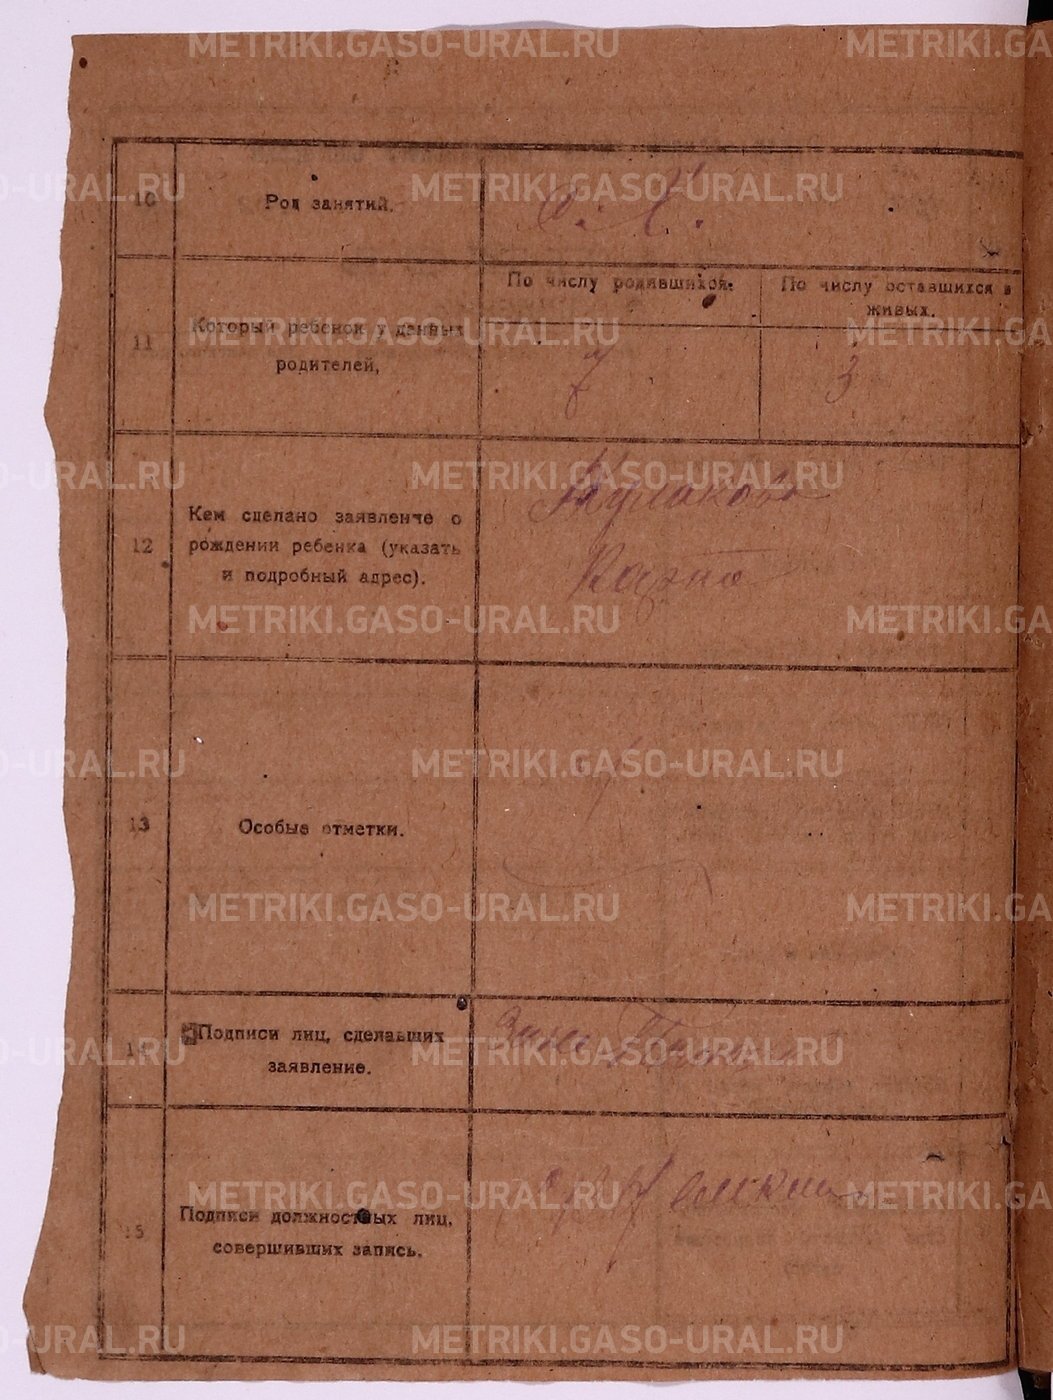 METRIKI.GASO-URAL.RU
10
Род занятий.
С. Х.
11
Который ребенок у данных
родителей,
По числу родившихся.
По числу оставшихся в
живых.
7
3
12
Кем сделано заявление о
рождении ребенка (указать
и подробный адрес).
13
Особые отметки.
Подписи лиц, сделавших
заявление.
15
Подписи должностных лиц,
совершивших запись.